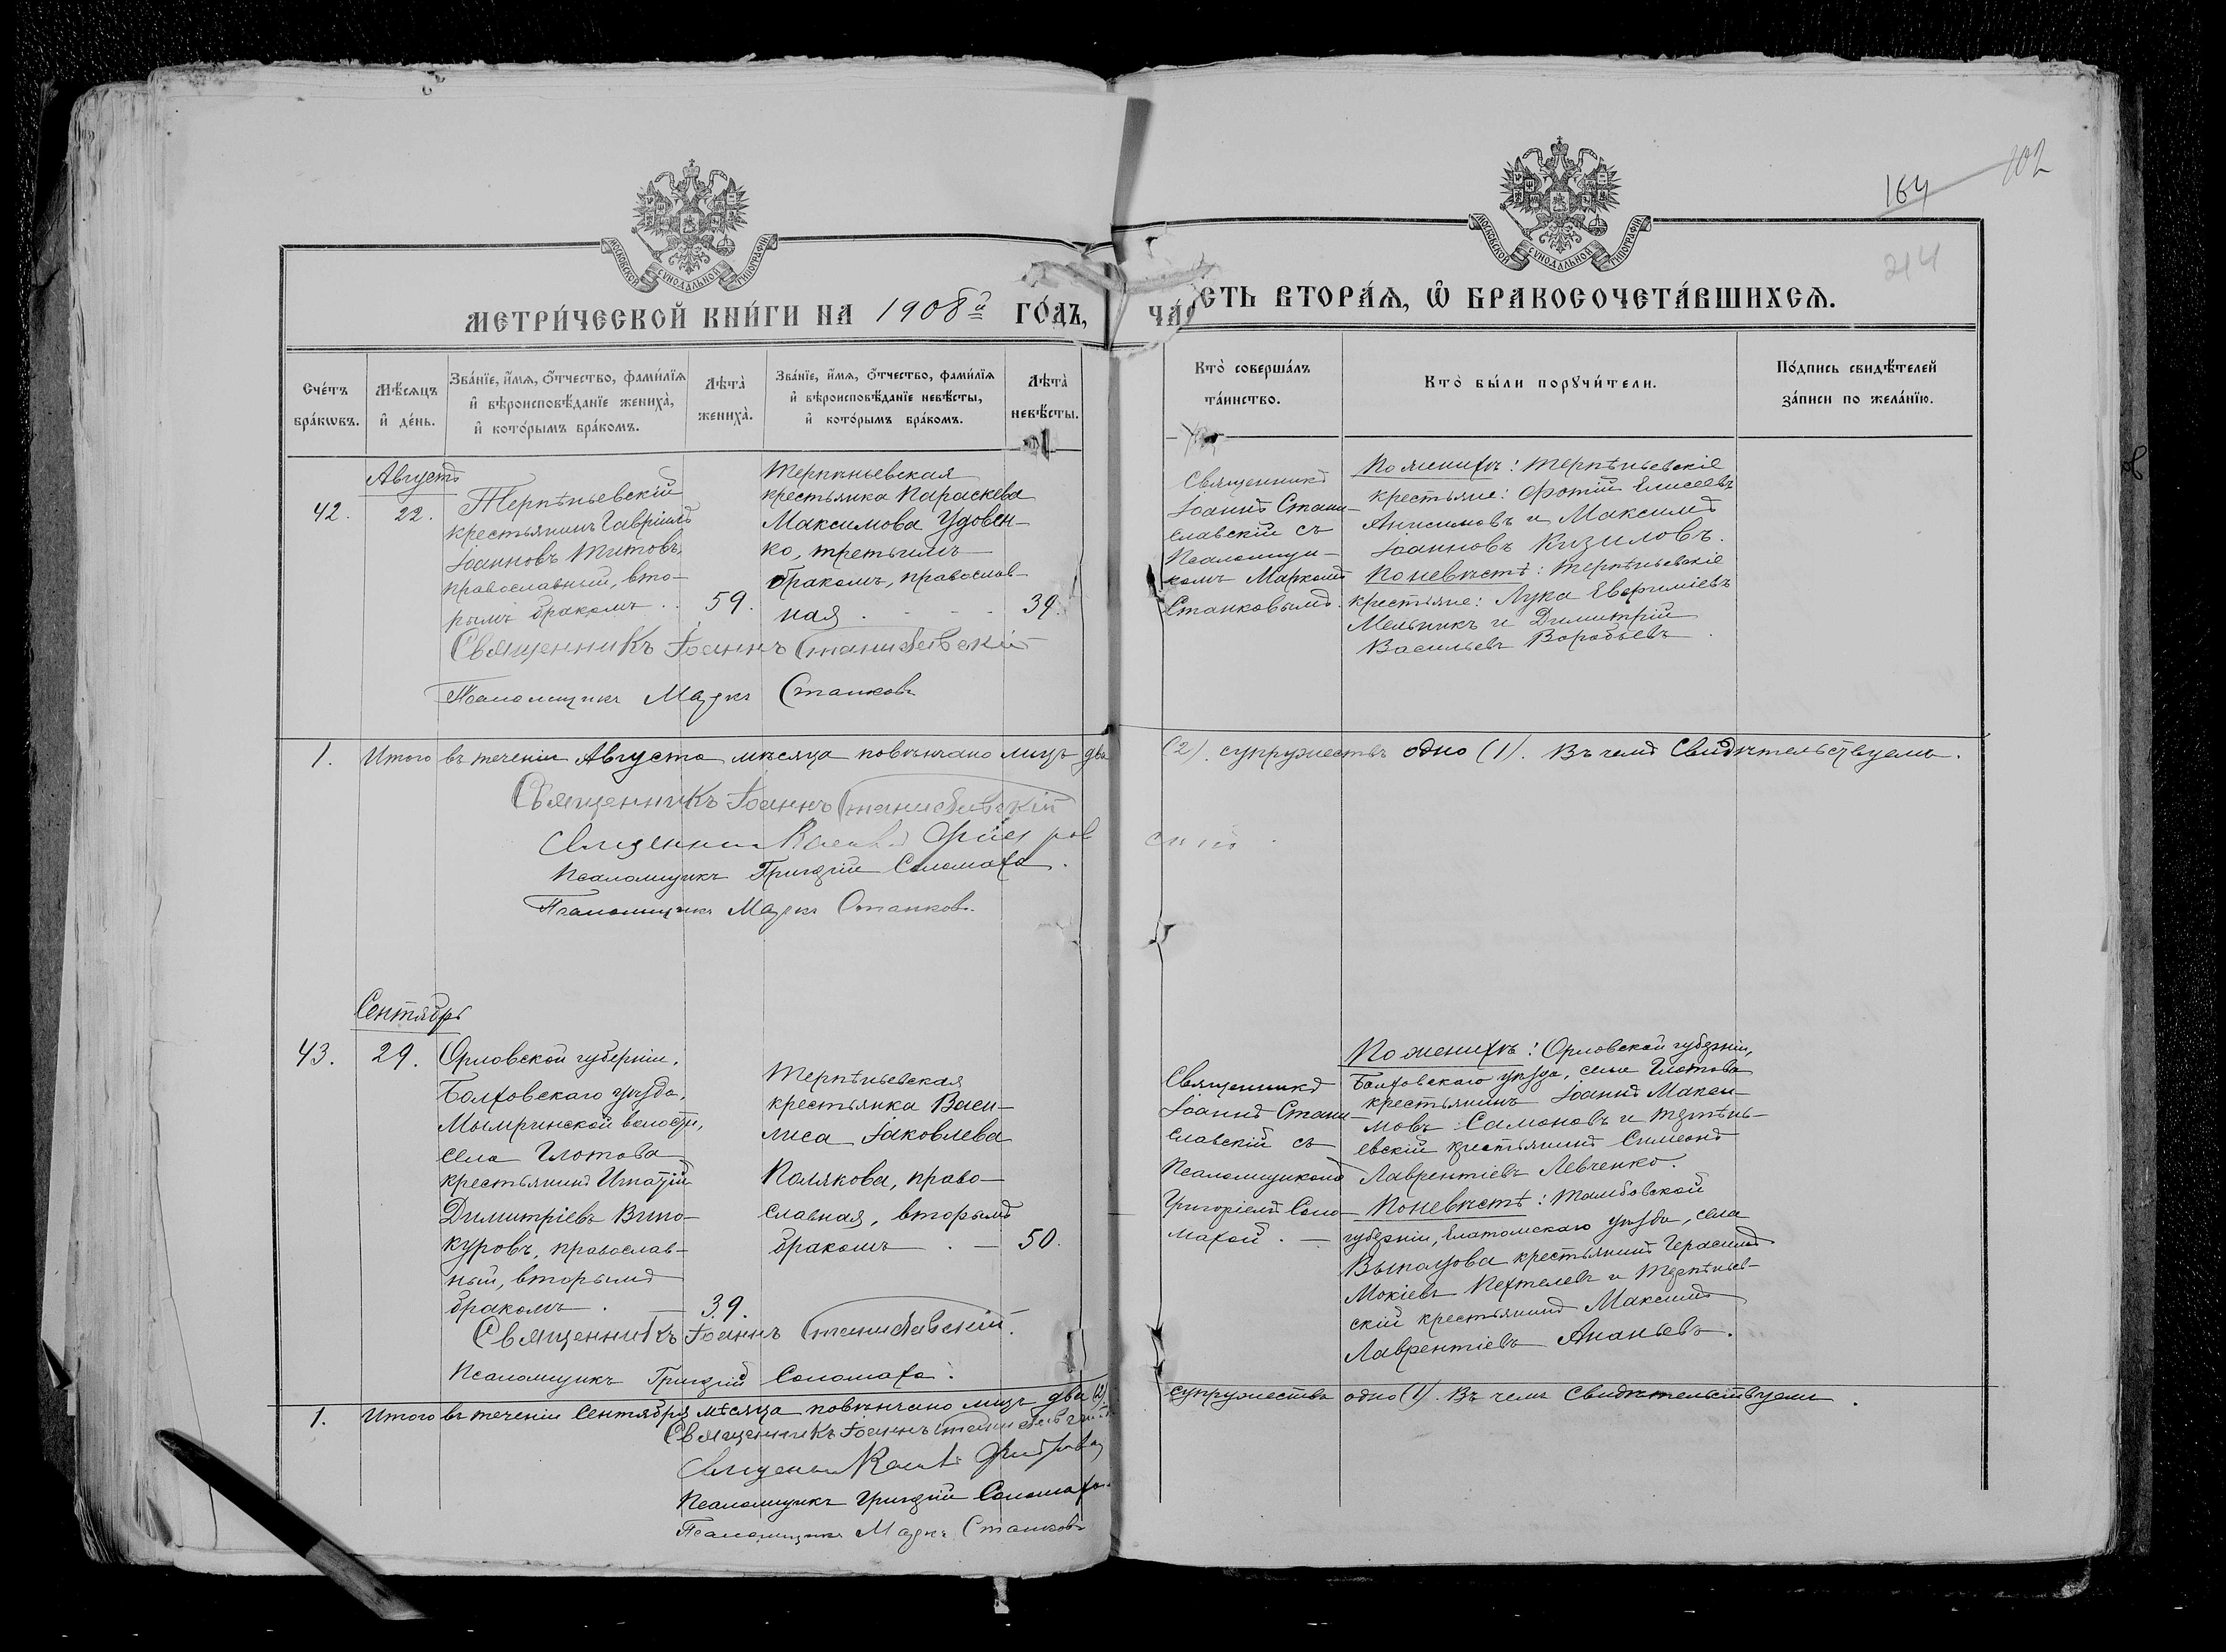 164
102
214
МОСКОВСКОЙ СѴНОДАЛЬНОЙ ТИПОГРАФІИ
МОСКОВСКОЙ СѴНОДАЛЬНОЙ ТИПОГРАФІИ
МЕТРИ́ЧЕСКОЙ КНИ́ГИ НА 1908й ГО́ДЪ,
ЧА́СТЬ ВТОРА́Ѧ, Ѽ БРАКОСОЧЕТА́ВШИХСѦ.
Сче́тъ бра́кѡвъ.
Мѣ́сѧцъ и҆ де́нь.
Зва́нїе, и҆́мѧ, ѻ҆́тчество, фами́лїѧ
и҆ вѣроисповѣ́данїе жениха̀,
и҆ кото́рымъ бра́комъ.
Лѣта̀ жениха̀.
Зва́нїе, и҆́мѧ, ѻ҆́тчество, фами́лїѧ
и҆ вѣроисповѣ́данїе невѣ́сты,
и҆ кото́рымъ бра́комъ.
Лѣта̀ невѣ́сты.
Кто̀ соверша́лъ
та́инство.
Кто̀ бы́ли порꙋчи́тели.
По́дпись свидѣ́телей
за́писи по жела́нїю.
Августъ
42.
22.
Терпѣньевскій
крестьянинъ Гавріилъ
Іоанновъ Титовъ,
православный, вто-
рымъ бракомъ . .
59.
Терпѣньевская
крестьянка Параскева
Максимова Удовен-
ко, третьимъ
бракомъ, православ-
ная .
39.
Священникъ
Іоаннъ Стани-
славскій съ
Псаломщи-
комъ Маркомъ
Станковымъ.
По женихѣ: Терпѣньевскіе
крестьяне: Фотій Елисеевъ
Анисимовъ и Максимъ
Іоанновъ Кизиловъ.
По невѣстѣ: Терпѣньевскіе
крестьяне: Лука Евфиміевъ
Мельникъ и Димитрій
Васильевъ Воробьевъ.
Священникъ Іоаннъ Станиславскій
Псаломщикъ Маркъ Станковъ
1. Итого въ теченіи Августа мѣсяца повѣнчано лицъ два (2). супружествъ одно (1). Въ чемъ Свидѣтельствуемъ.
Священникъ Іоаннъ Станиславскій
Священникъ
Псаломщикъ Григорій Соломаха.
Псаломщикъ Маркъ Станковъ.
Сентябрь
43.
29.
Орловской губерніи,
Болховскаго уѣзда,
Мымринской волости,
села Глотова
крестьянинъ Игнатій
Димитріевъ Вино-
куровъ, православ-
ный, вторымъ
бракомъ . —
39.
Терпѣньевская
крестьянка Васи-
лиса Іаковлева
Полякова, право-
славная, вторымъ
бракомъ . —
50.
Священникъ
Іоаннъ Стани-
славскій съ
Псаломщикомъ
Григоріемъ Соло-
махой. —
По женихѣ: Орловской губерніи,
Болховскаго уѣзда, села Глотова
крестьянинъ Іоаннъ Макси-
мовъ Самоновъ и Терпѣнь-
евскій крестьянинъ Симеонъ
Лаврентіевъ Левченко.
По невѣстѣ: Тамбовской
губерніи, Елатомскаго уѣзда, села
крестьянинъ Герасимъ
Мокіевъ Пехтелевъ и Терпѣньев-
скій крестьянинъ Максимъ
Лаврентіевъ Ананьевъ.
Священникъ Іоаннъ Станиславскій.
Псаломщикъ Григорій Соломаха.
1. Итого въ теченіи Сентября мѣсяца повѣнчано лицъ два (2). супружества одно (1). Въ чемъ Свидѣтельствуемъ.
Священникъ Іоаннъ Станиславскій
Священникъ
Псаломщикъ Григорій Соломаха.
Псаломщикъ Маркъ Станковъ